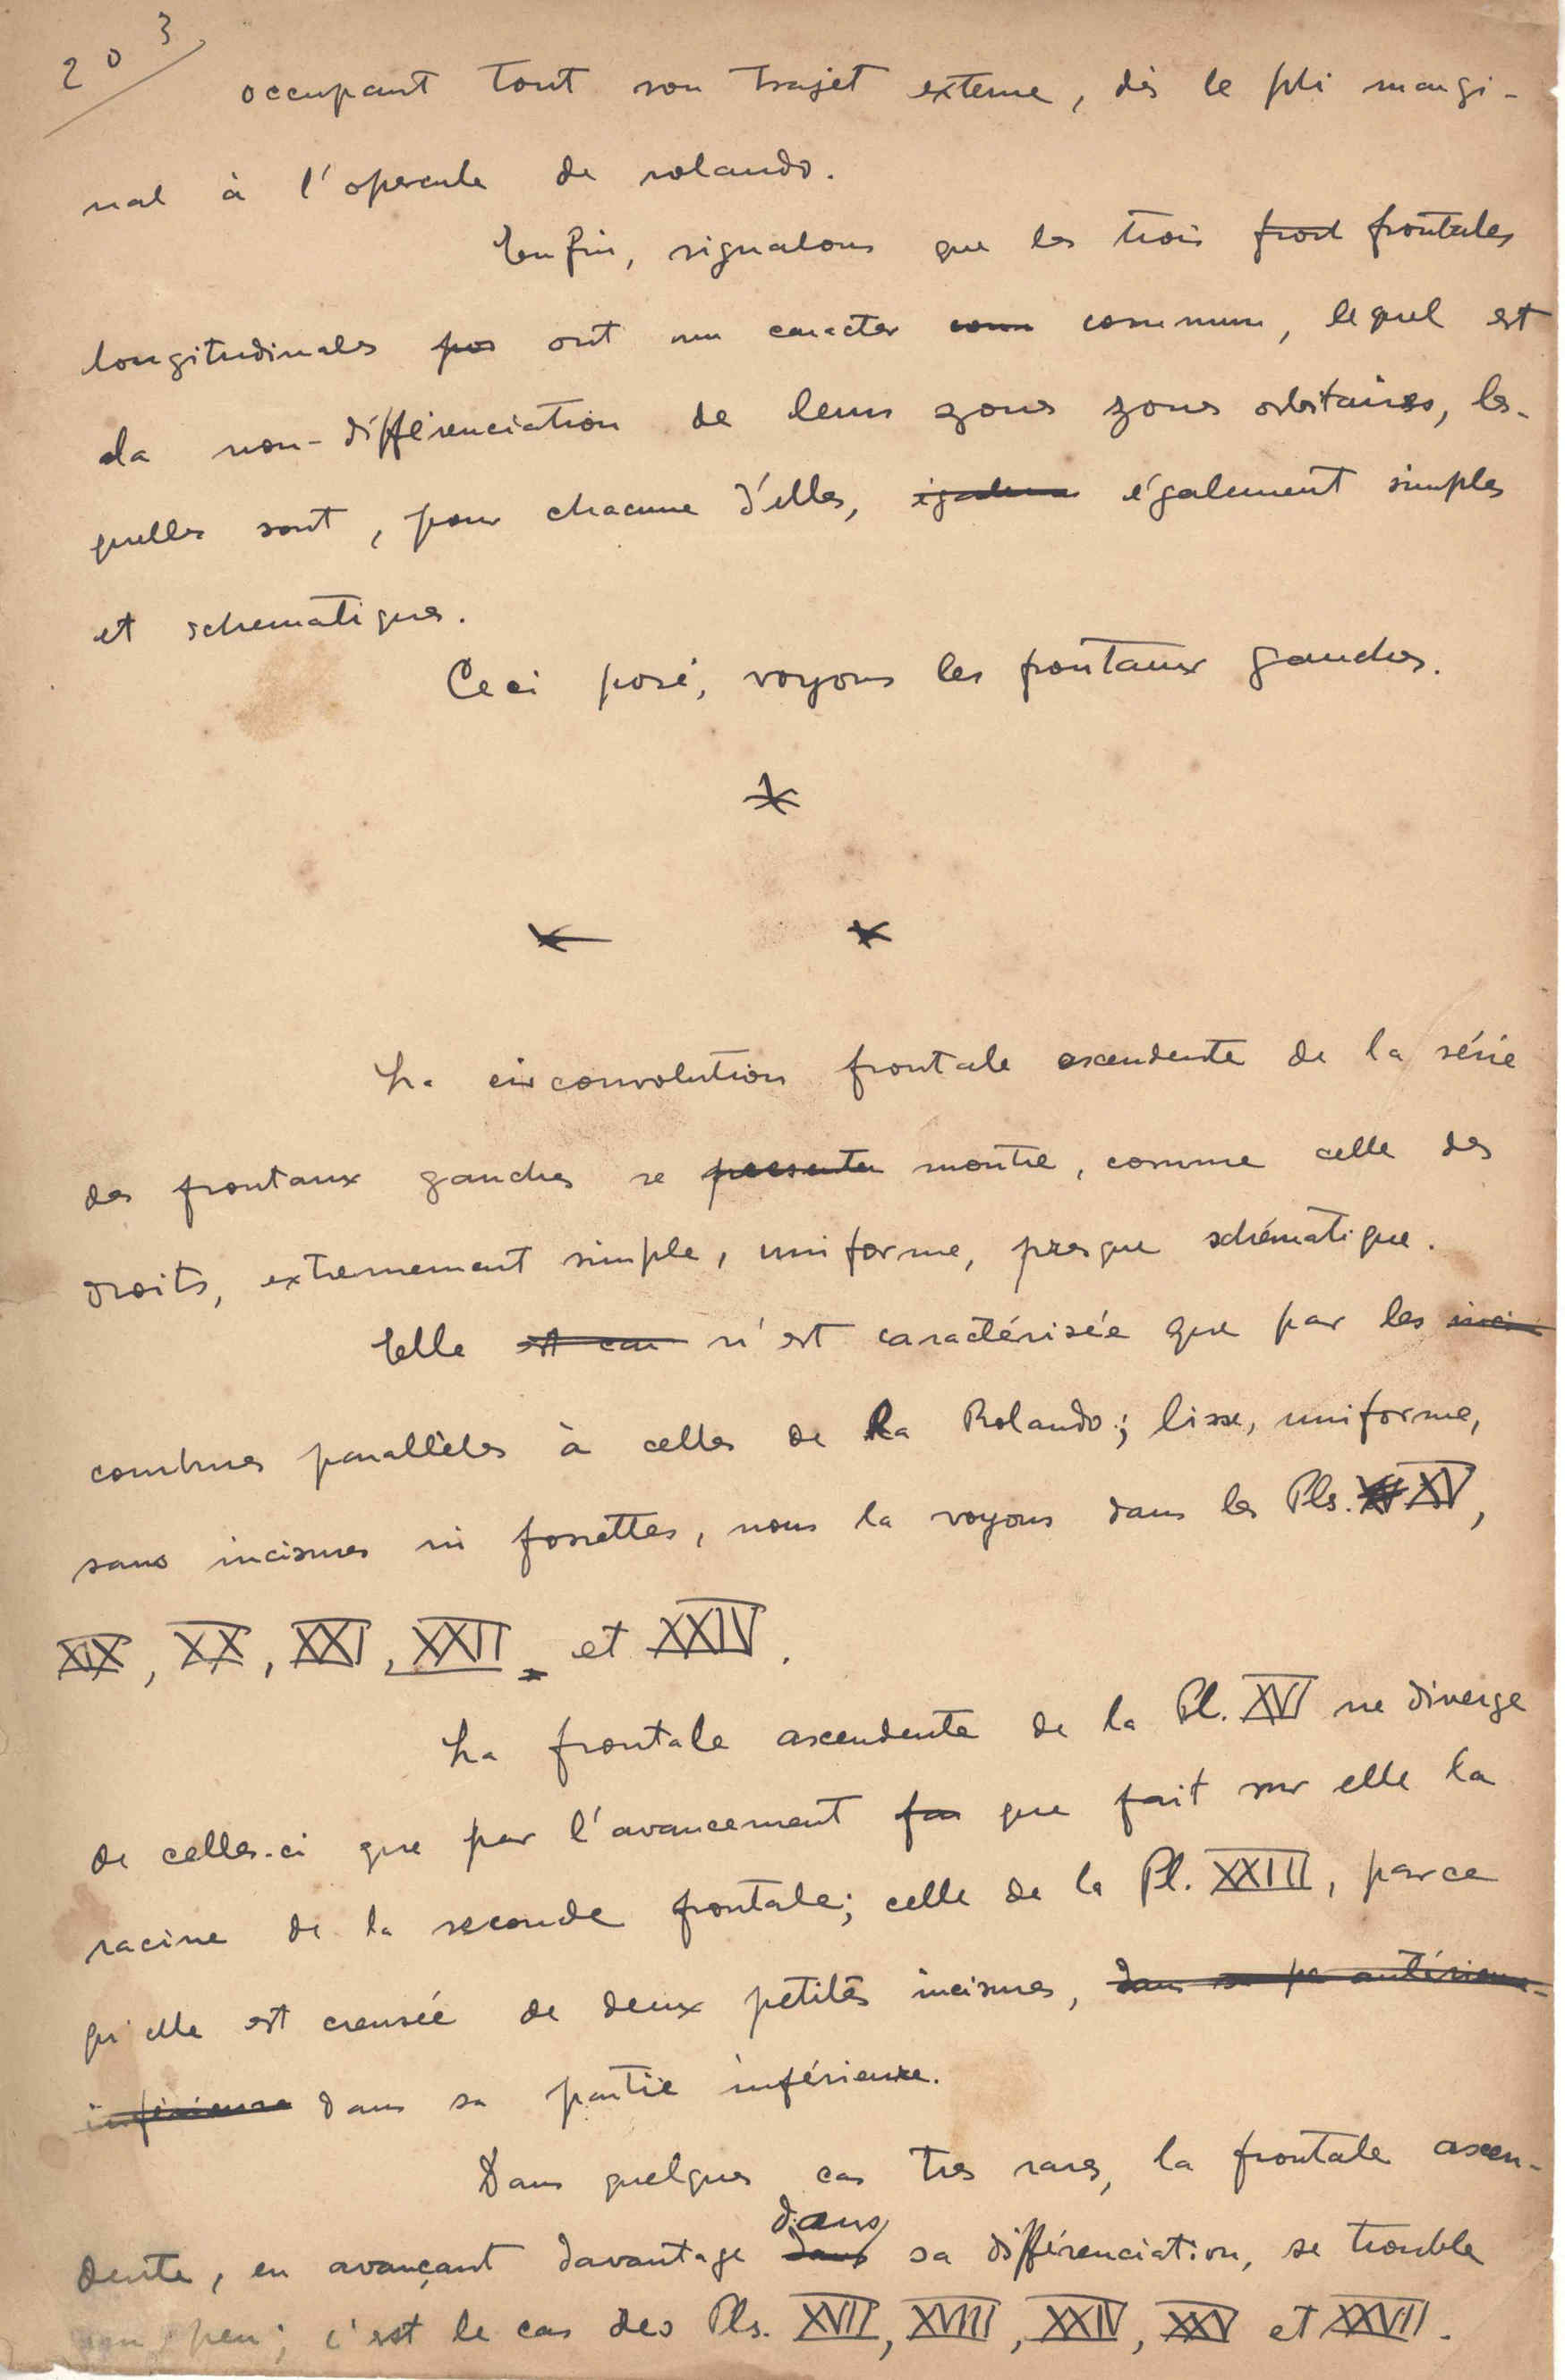 203
occupant tout son trajet externe, dès le pli margi-
nal à l'opercule de rolando.
Enfin, signalons que les trois front frontales
longitudinales pos ont un caracter comm commun, lequel est
la non-différenciation de leurs zones zones orbitaires, les-
quelles sont, pour chacune d'elles, égalem également simples
et schematiques.
Ceci posé, voyons les frontaux gauches.
*
* *
La circonvolution frontale ascendente de la série
des frontaux gauches se presente montre, comme celle des
droits, extremement simple, uniforme, presque schématique.
Elle est car n'est caractérisée que par les inci
courbures parallèles à celles de la Rolando; lisse, uniforme,
sans incisures ni fossettes, nous la voyons dans les Pls. XV,
XIX, XX, XXI, XXII et XXIV.
La frontale ascendente de la Pl. XVI ne diverge
de celles-ci que par l'avancement fai que fait sur elle la
racine de la seconde frontale; celle de la Pl. XXIII, parce
qu'elle est creusée de deux petites incisures, dans sa pa antérieure-
inférieure dans sa partie inférieure.
Dans quelques cas tres rares, la frontale ascen-
dans
dente, en avançant davantage dans sa différenciation, se trouble
un peu; c'est le cas des Pls. XVII, XVIII, XXIV, XXV et XXVII.